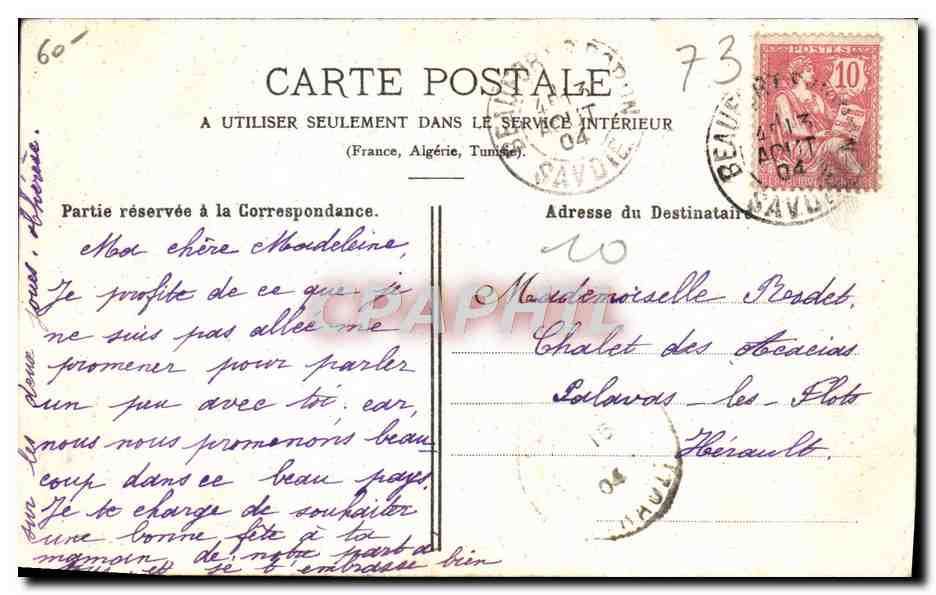 60-
CARTE POSTALE
A UTILISER SEULEMENT DANS LE SERVICE INTÉRIEUR
(France, Algérie, Tunisie).
73
POSTES
10
BEAUFORT
13
AOUT
04
SAVOIE
BEAUFORT
13
AOUT
04
SAVOIE
Partie réservée à la Correspondance.
Ma chère Madeleine,
Je profite de ce que je
ne suis pas allée me
promener pour parler
un peu avec toi. car,
nous nous promenons beau
coup dans ce beau pays.
Je te charge de souhaiter
une bonne fête à ta
maman de notre part à
tous et je t'embrasse bien
sur les deux joues. Thérèse.
Adresse du Destinataire
10
Mademoiselle Rodet.
Chalet des Acacias
Palavas-les-Flots
Hérault.
15
04
HÉRAULT
CPAPHIL